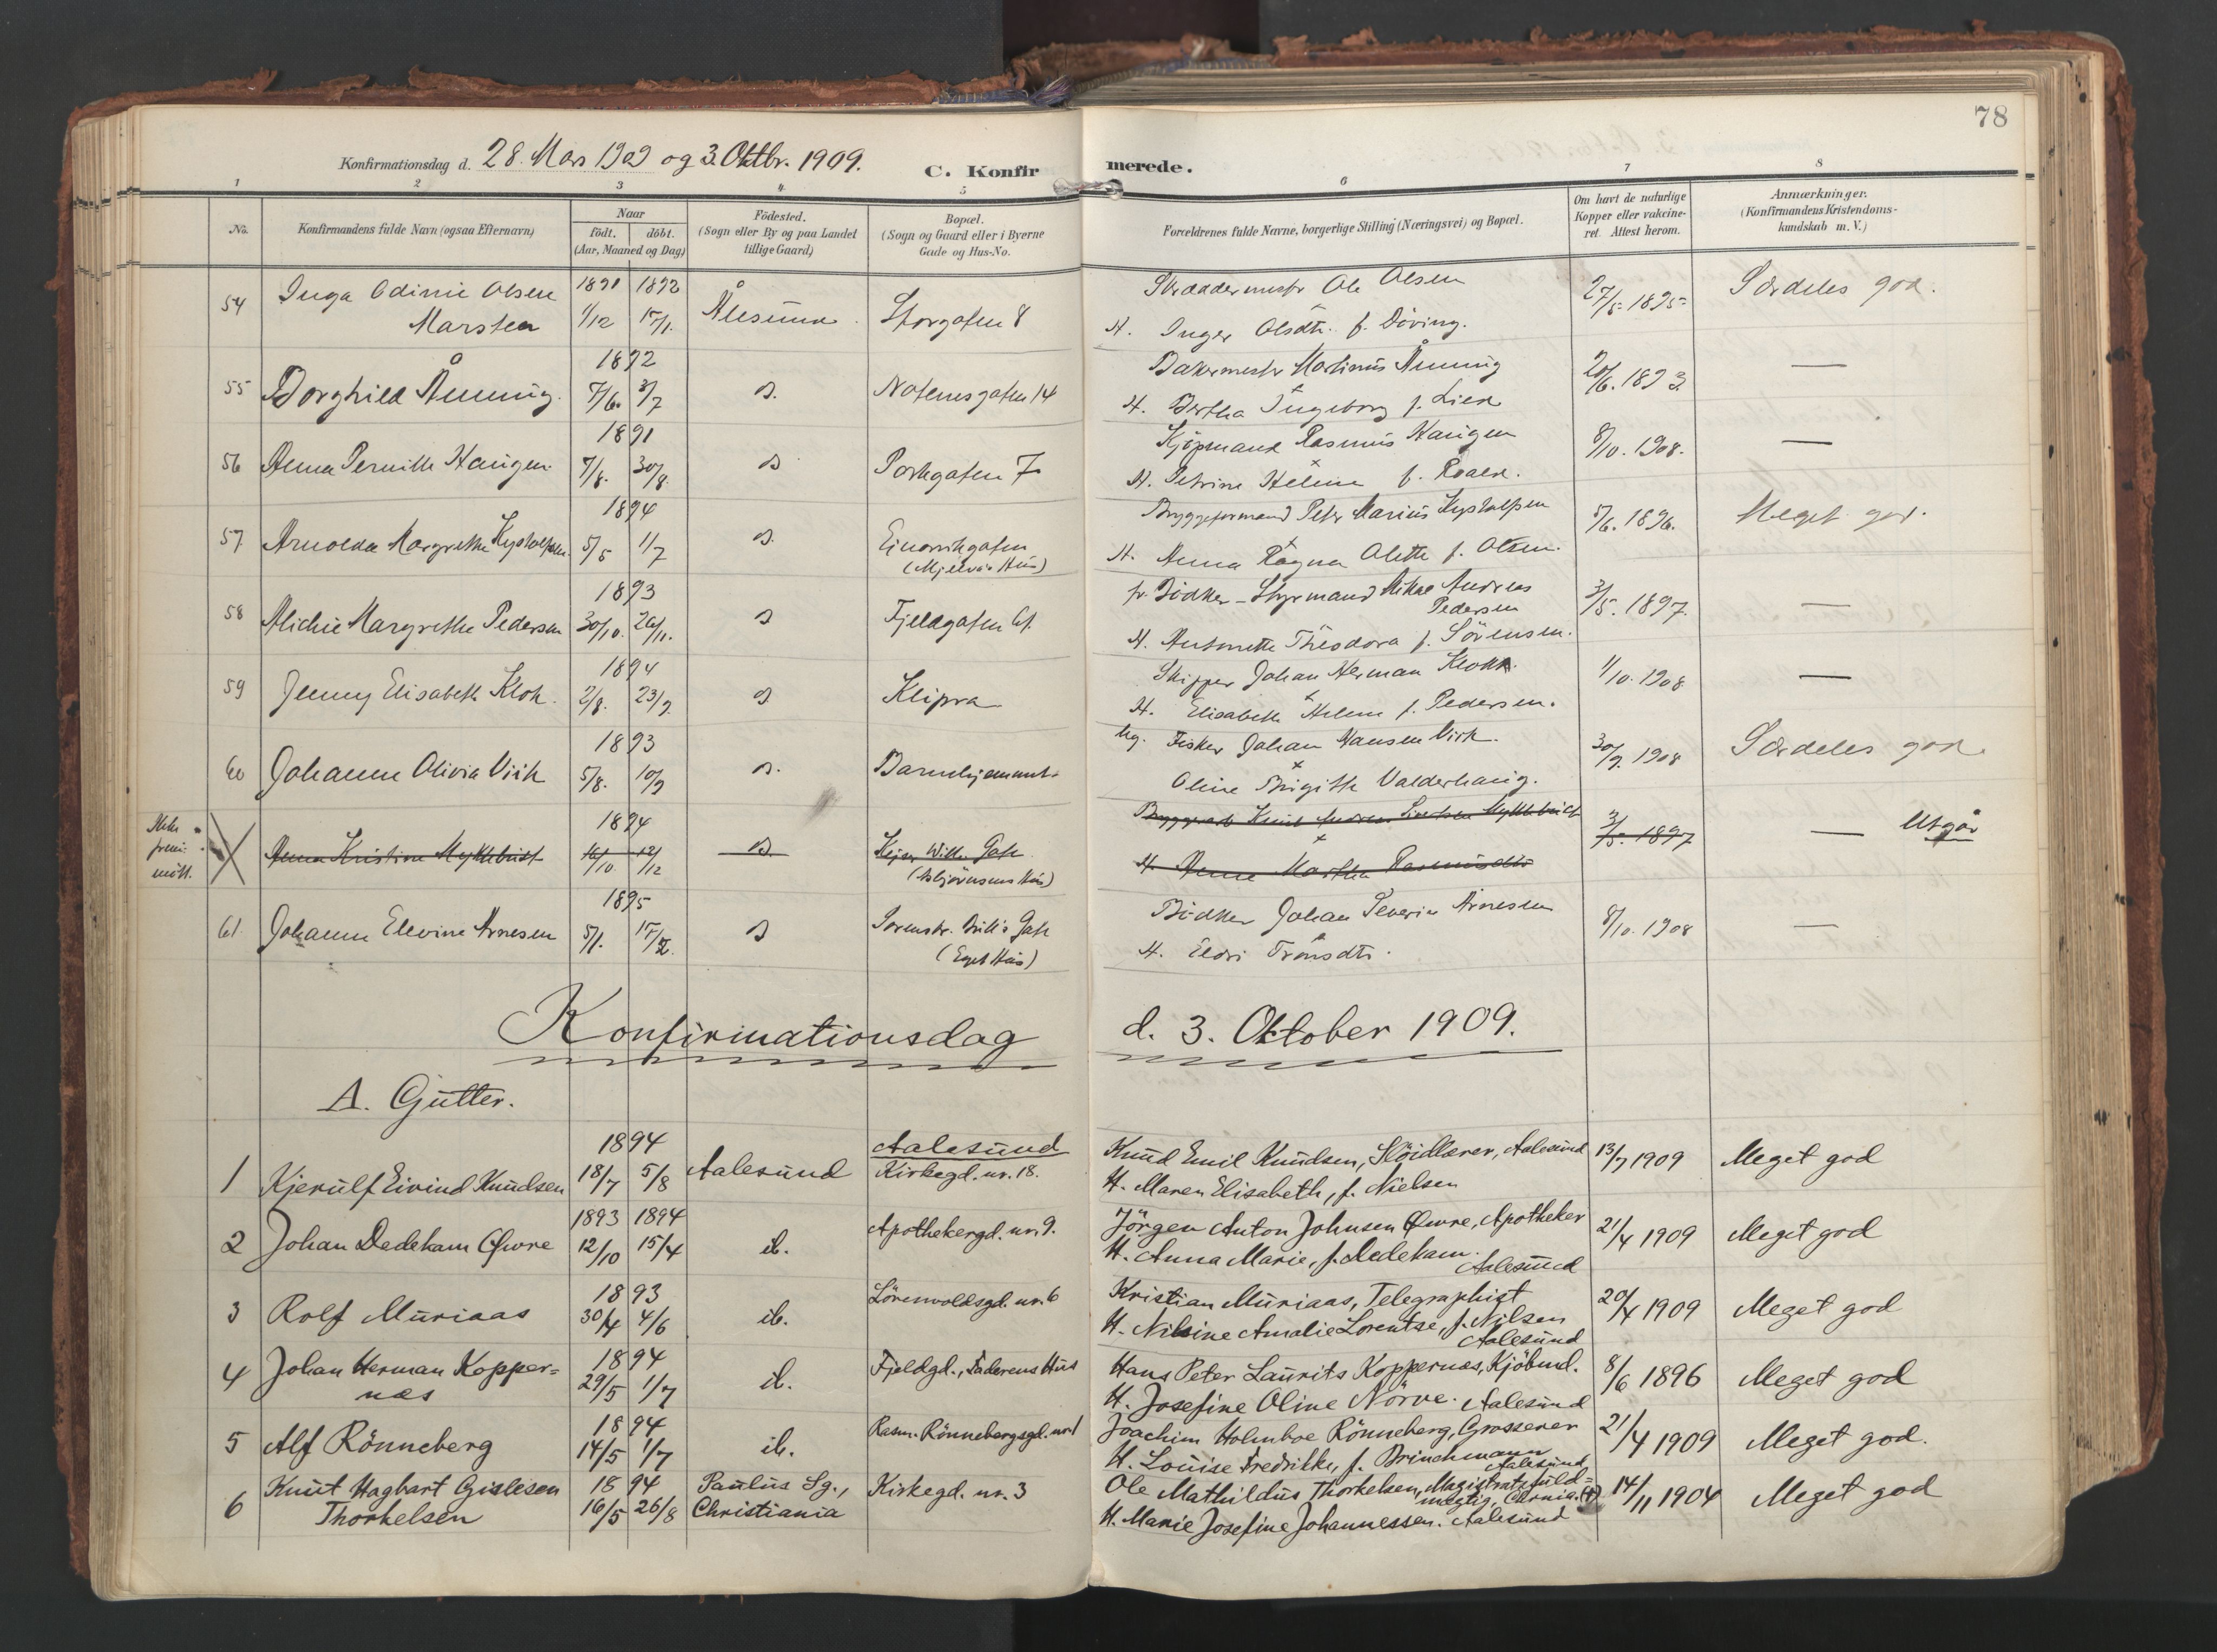 78
Konfirmationsdag d. 28. Mars 1909 og 3. Oktbr. 1909.
C. Konfir
merede.
1 2 3 4 5 6 7 8
No.
Konfirmandens fulde Navn (ogsaa Efternavn)
Naar
födt. döbt.
(Aar, Maaned og Dag)
Födested.
(Sogn eller By og paa Landet
tillige Gaard)
Bopæl.
(Sogn og Gaard eller i Byerne
Gade og Hus-No.
Forældrenes fulde Navne, borgerlige Stilling (Næringsvei) og Bopæl.
Om havt de naturlige
Kopper eller vakcine-
ret. Attest herom.
Anmærkninger.
(Konfirmandens Kristendoms-
kundskab m. V.)
54 Inga Odinie Olsen 1891 1892 Ålesund Storgaten 8 Skræddermestr Ole Olsen 27/5 1895 Særdeles god.
Marsteen 1/12 17/1. H. Inger Olsdtr. f. Döving.
1892
55 Borghild Ånning 7/6. 3/7 Notenesgaten 14 Bakermestr Martinus Ånning 20/6. 1893 —
H. Bertha Ingeborg f. Lied
1891
56 Anna Pernille Haugen 7/8. 30/8 Parkgaten 7 Kjöpmand Rasmus Haugen 8/10. 1908. —
H. Petrine Helene f. Roald.
1894
57 Arnolda Margrethe 5/5 1/7 Bryggeformand Petr Marius 5/6. 1896. Meget god.
H. Anna Ragna Olette f. Olsen.
1893
58 Margrethe Pedersen 30/10. 26/11. Fjeldgaten 61. fr. Bödker - Styrmand Andreas 3/5. 1897. —
Pedersen
H. Antonette Theodora f. Sörensen.
1894
59 Jenny Elisabeth Klok 2/8. 23/9. Klipra Skipper Johan Herman Klokk. 1/10. 1908 —
H. Elisabeth Helene f. Pedersen.
1893
60 Johanne Olivia Vik 5/8. 10/9 Barnehjemmet Ug. Fisker Johan Hansen Vik. 30/9. 1908 Særdeles god
Oline Brigitte Valderhaug.
Ikke
frem-
mött.
1894
Anna Kristine Myklebust 16/10 12/12 Keiser Wilh. Gate 3/5. 1897 — Utgår
(Asbjörnsens Hus)
H. Anne Martha Rasmusdtr
1895
61. Johanne Elevine Arnesen 5/1. 17/2. Bödker Johan Severin Arnesen 8/10. 1908 —
(Eget Hus)
H. Eldri Tronsdtr.
Konfirmationsdag d. 3. Oktober 1909.
A. Gutter.
1894 Aalesund
1 Kjerulf Eivind Knudsen 18/7 5/8 Aalesund Kirkegd. nr. 18. Knud Emil Knudsen, Slöidlærer, Aalesund 13/7 1909 Meget god
H. Maren Elisabeth, f. Nielsen
1893 1894
2 Johan Dedekam Qvore 12/10 15/4 ib. Apothekergd. nr. 9. Jörgen Anton Johnsen Qvore, Apotheker 21/4 1909 Meget god
H. Anna Marie, f. Dedekam.
Aalesund
1893
3 Rolf Muriaas 30/4 4/6 ib. Lörenvoldsgd. nr. 6 Kristian Muriaas, Telegraphist 20/4 1909 Meget god
H. Nilsine Amalie Lorentse, f. Nilsen
Aalesund
1894
4 Johan Herman Kopper= 29/5 1/7 ib. Fjeldgd., Faderens Hus Hans Peter Laurits Koppernæs, Kjöbmd. 8/6 1896 Meget god
næs H. Josefine Oline Nörve. Aalesund
1894
5 Alf Rönneberg 14/5 1/7 ib. Rasm. Rönnebergsgd. nr 1 Joachim Holmboe Rönneberg, Grosserer 21/4 1909 Meget god.
H. Louise Fredrikke, f. Brinchmann
Aalesund
6 Knut Hagbart Gislesen 1894 Paulus Sg., Kirkegd. nr. 3 Ole Mathildus Thorkelsen, Magistratsfuld= 14/11 1904 Meget god
Thorkelsen 16/5 26/8 Christiania mægtig, Chrnia. (†)
H. Marie Josefine Johannessen. Aalesund